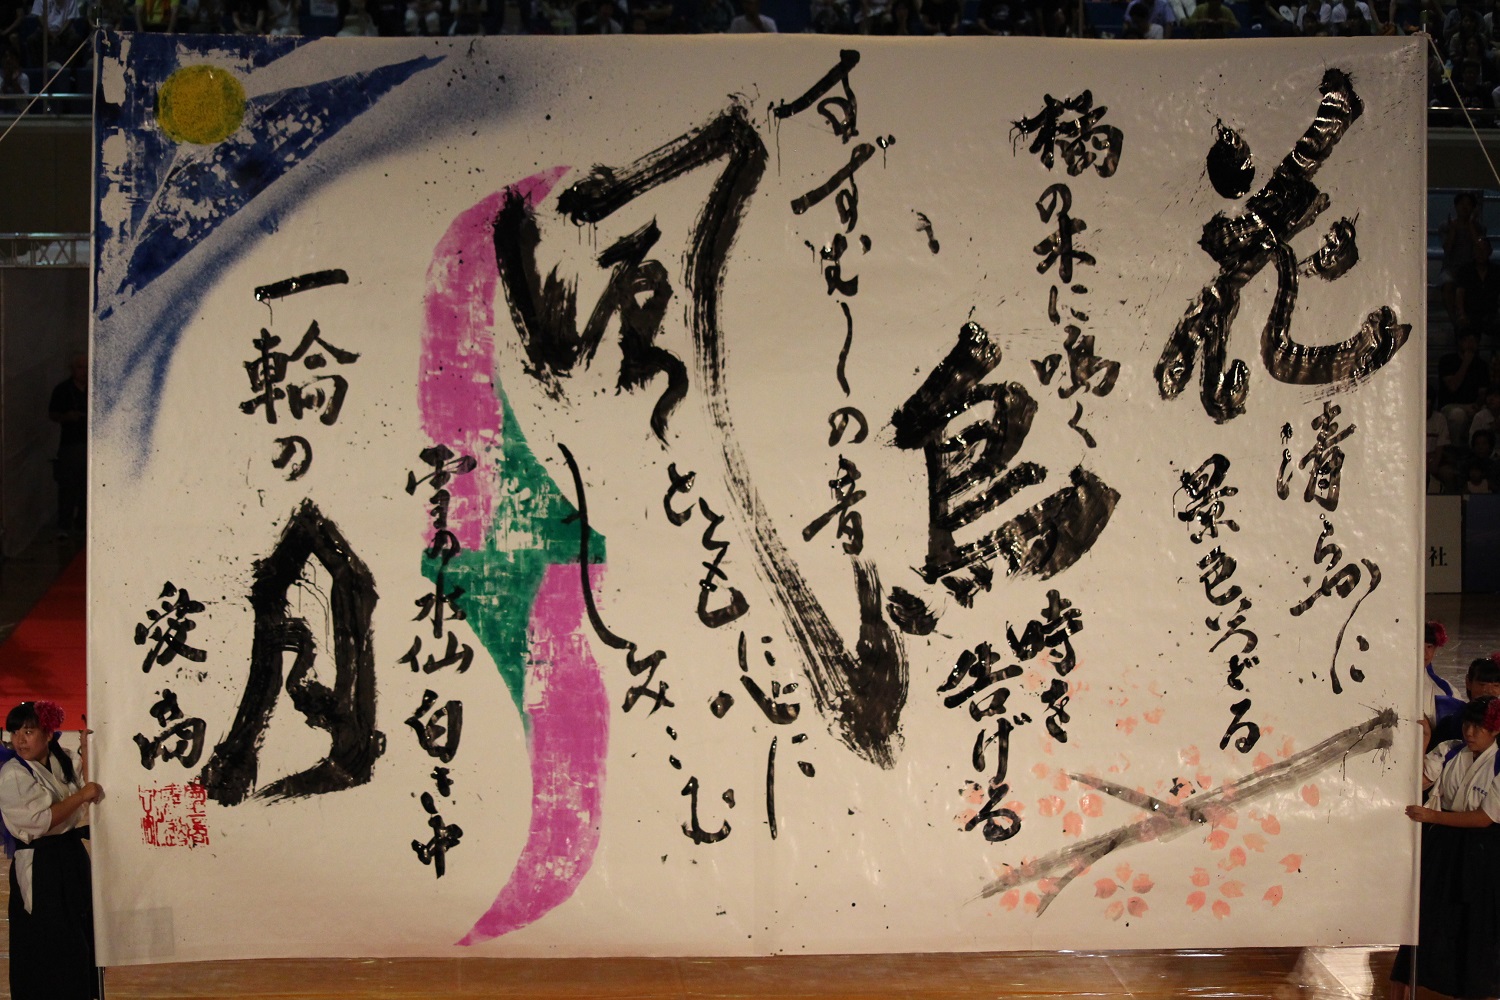 花
清らかに
景色いろどる
橘の木に鳴く
鳥
時を
告げる
すずむしの音
風
とともに心に
しみこむ
雪の水仙白き中
一輪の
月
愛高
社